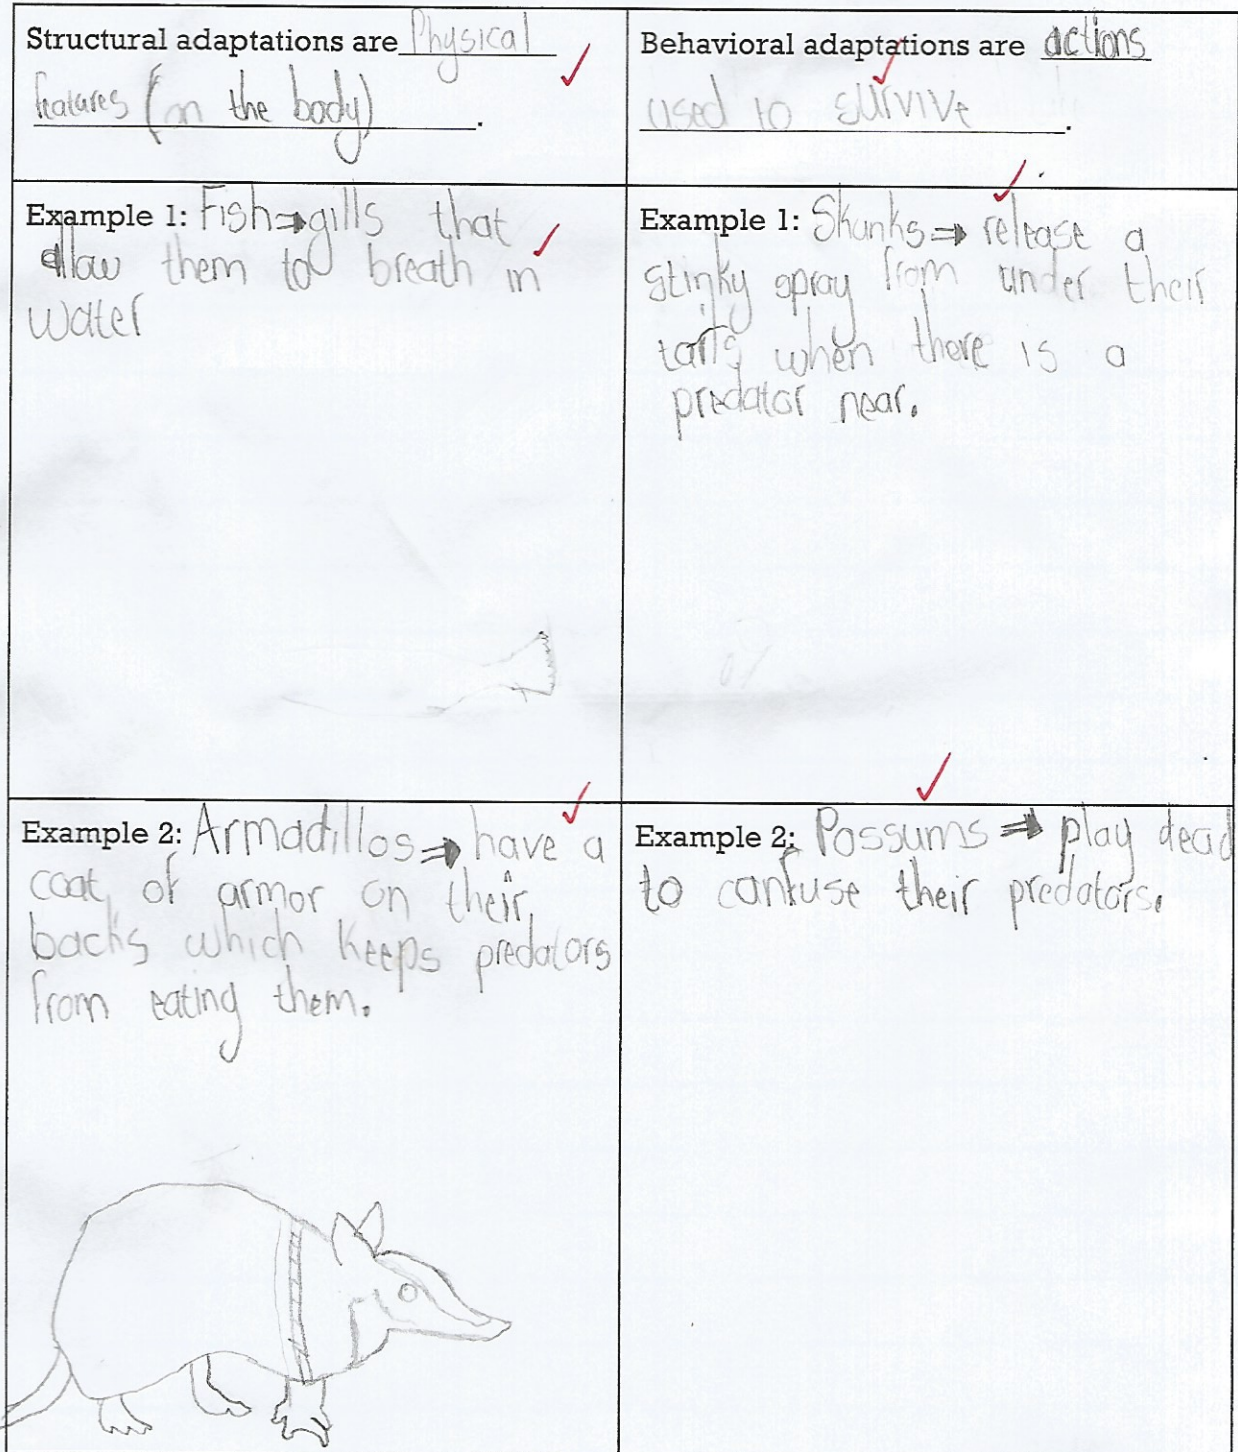 Structural adaptations are Physical
features (on the body).
Behavioral adaptations are actions
used to survive.
Example 1: Fish⇒gills that
allow them to breath in
water
Example 1: Skunks⇒ release a
stinky spray from under their
tails when there is a
predator near.
Example 2: Armadillos⇒ have a
coat of armor on their
backs which keeps predators
from eating them.
Example 2: Possums ⇒ play dead
to confuse their predators.